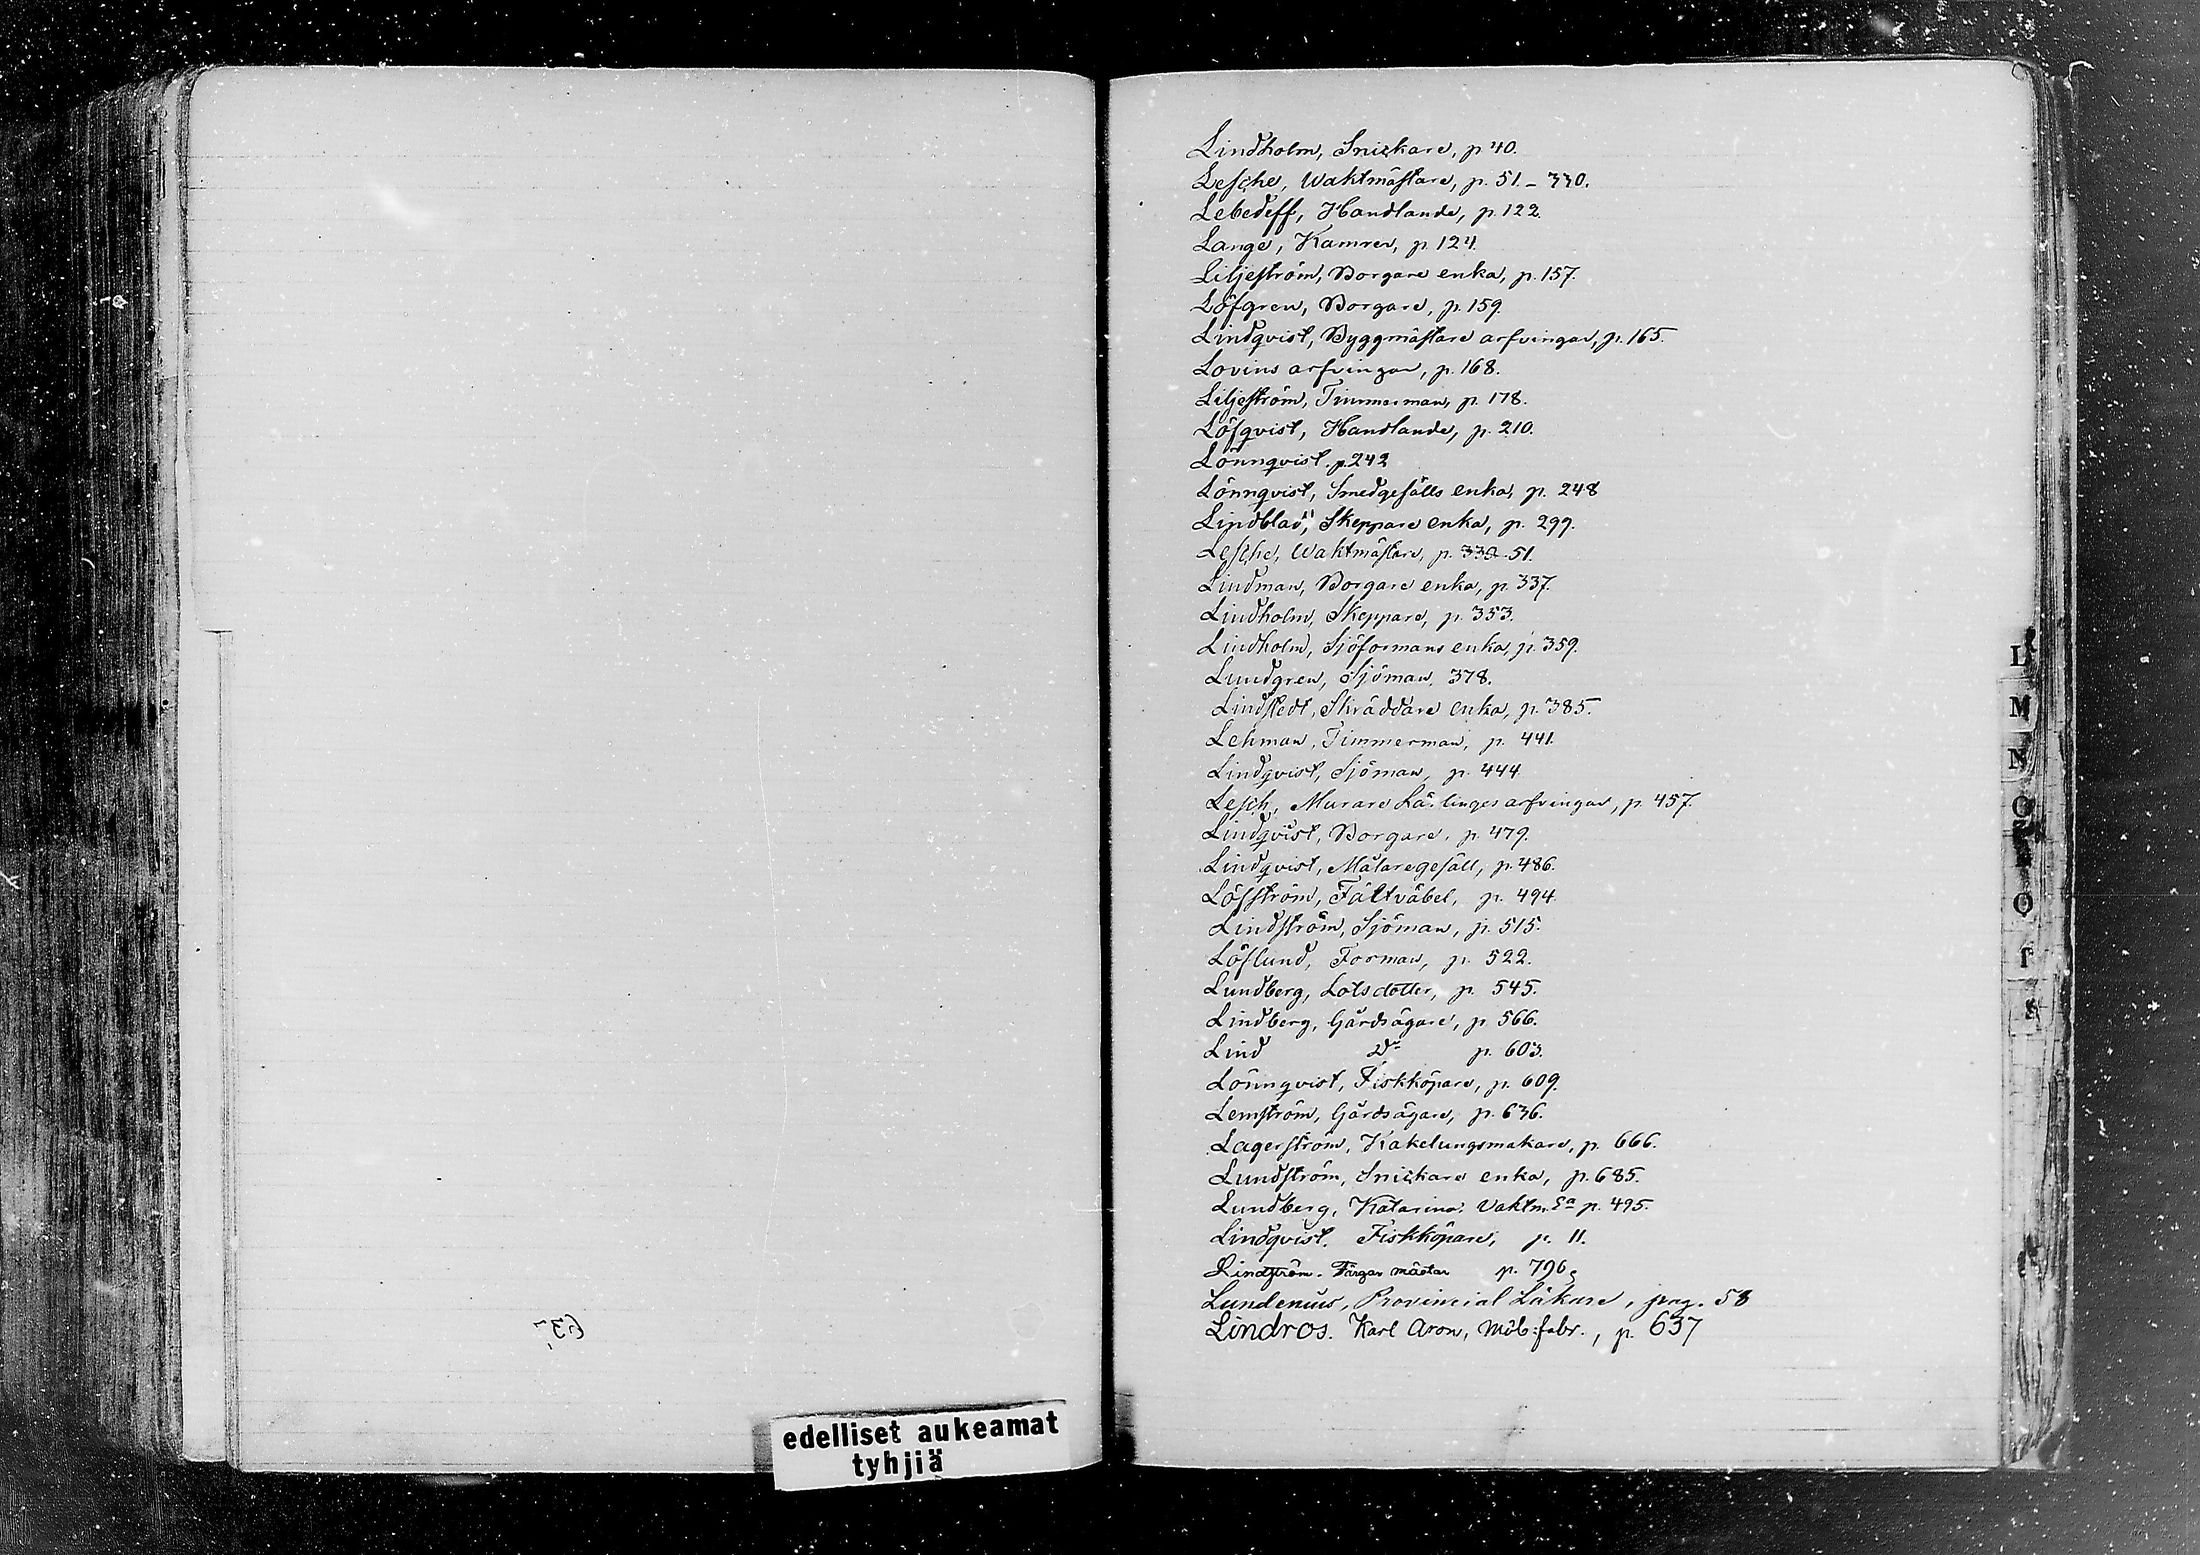 Lindholm, Snickare, p 40.
Lesche, Waktmästare, p. 51 - 330.
Lebedeff, Handlande, p. 122.
Lange, Kamrer, p 124.
Liljeström, Borgare enka, p. 157.
Löfgren, Borgare, p. 159.
Lindqvist, Byggmästare arfvingar, p. 165.
Lovins arfvingar, p. 168.
Liljeström, Timmerman, p. 178.
Löfqvist, Handlande, p. 210.
Lönnqvist. p 242
Lönnqvist, Smedgesälls enka, p. 248
Lindblad, Skeppare enka, p. 299.
Lesche, Waktmästare, p. 330 51.
Lindman, Borgare enka, p. 337.
Lindholm, Skeppare, p. 353.
Lindholm, Sjöformans enka, p. 359.
Lundgren, Sjöman, 378.
Lindstedt, Skräddare enka, p. 385.
Lehman, Timmerman, p. 441.
Lindqvist, Sjöman, p. 444
Lesch, Murare Lärlinges arfvingar, p. 457.
Lindqvist, Borgare, p. 479.
Lindqvist, Målaregesäll, p. 486.
Löfström, Fältväbel, p. 494
Lindström, Sjöman, p. 515.
Löflund, Forman, p. 522.
Lundberg, Lotsdotter, p. 545.
Lindberg, Gårdsägare, p 566.
Lind Do p. 603.
Lönnqvist, Fiskköpare, p. 609.
Lemström, Gårdsägare, p. 636.
Lagerström, Kakelungsmakare, p. 666.
Lundström, Snickare enka, p. 685.
Lundberg, Katarina. Vaktm. Ea p. 495.
Lindqvist. Fiskköpare, p. 11.
Lindström. Färgar mästar p. 796
Lundenius, Provincial Läkare, pag. 58
Lindros. Karl Aron, Möb:fabr., p. 637
637
edelliset aukeamat
tyhjiä
L
M
N
O
Q